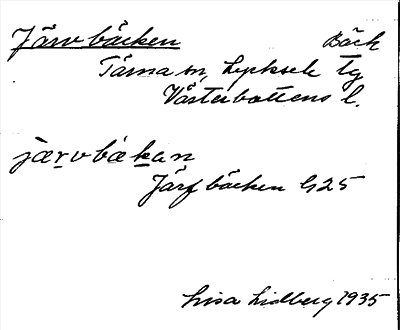 Järvbäcken Bäck
Tärna sn, Lycksele tg
Västerbottens l.
jærvbäkan
Järfbäcken G25
Lisa Lidberg 1935